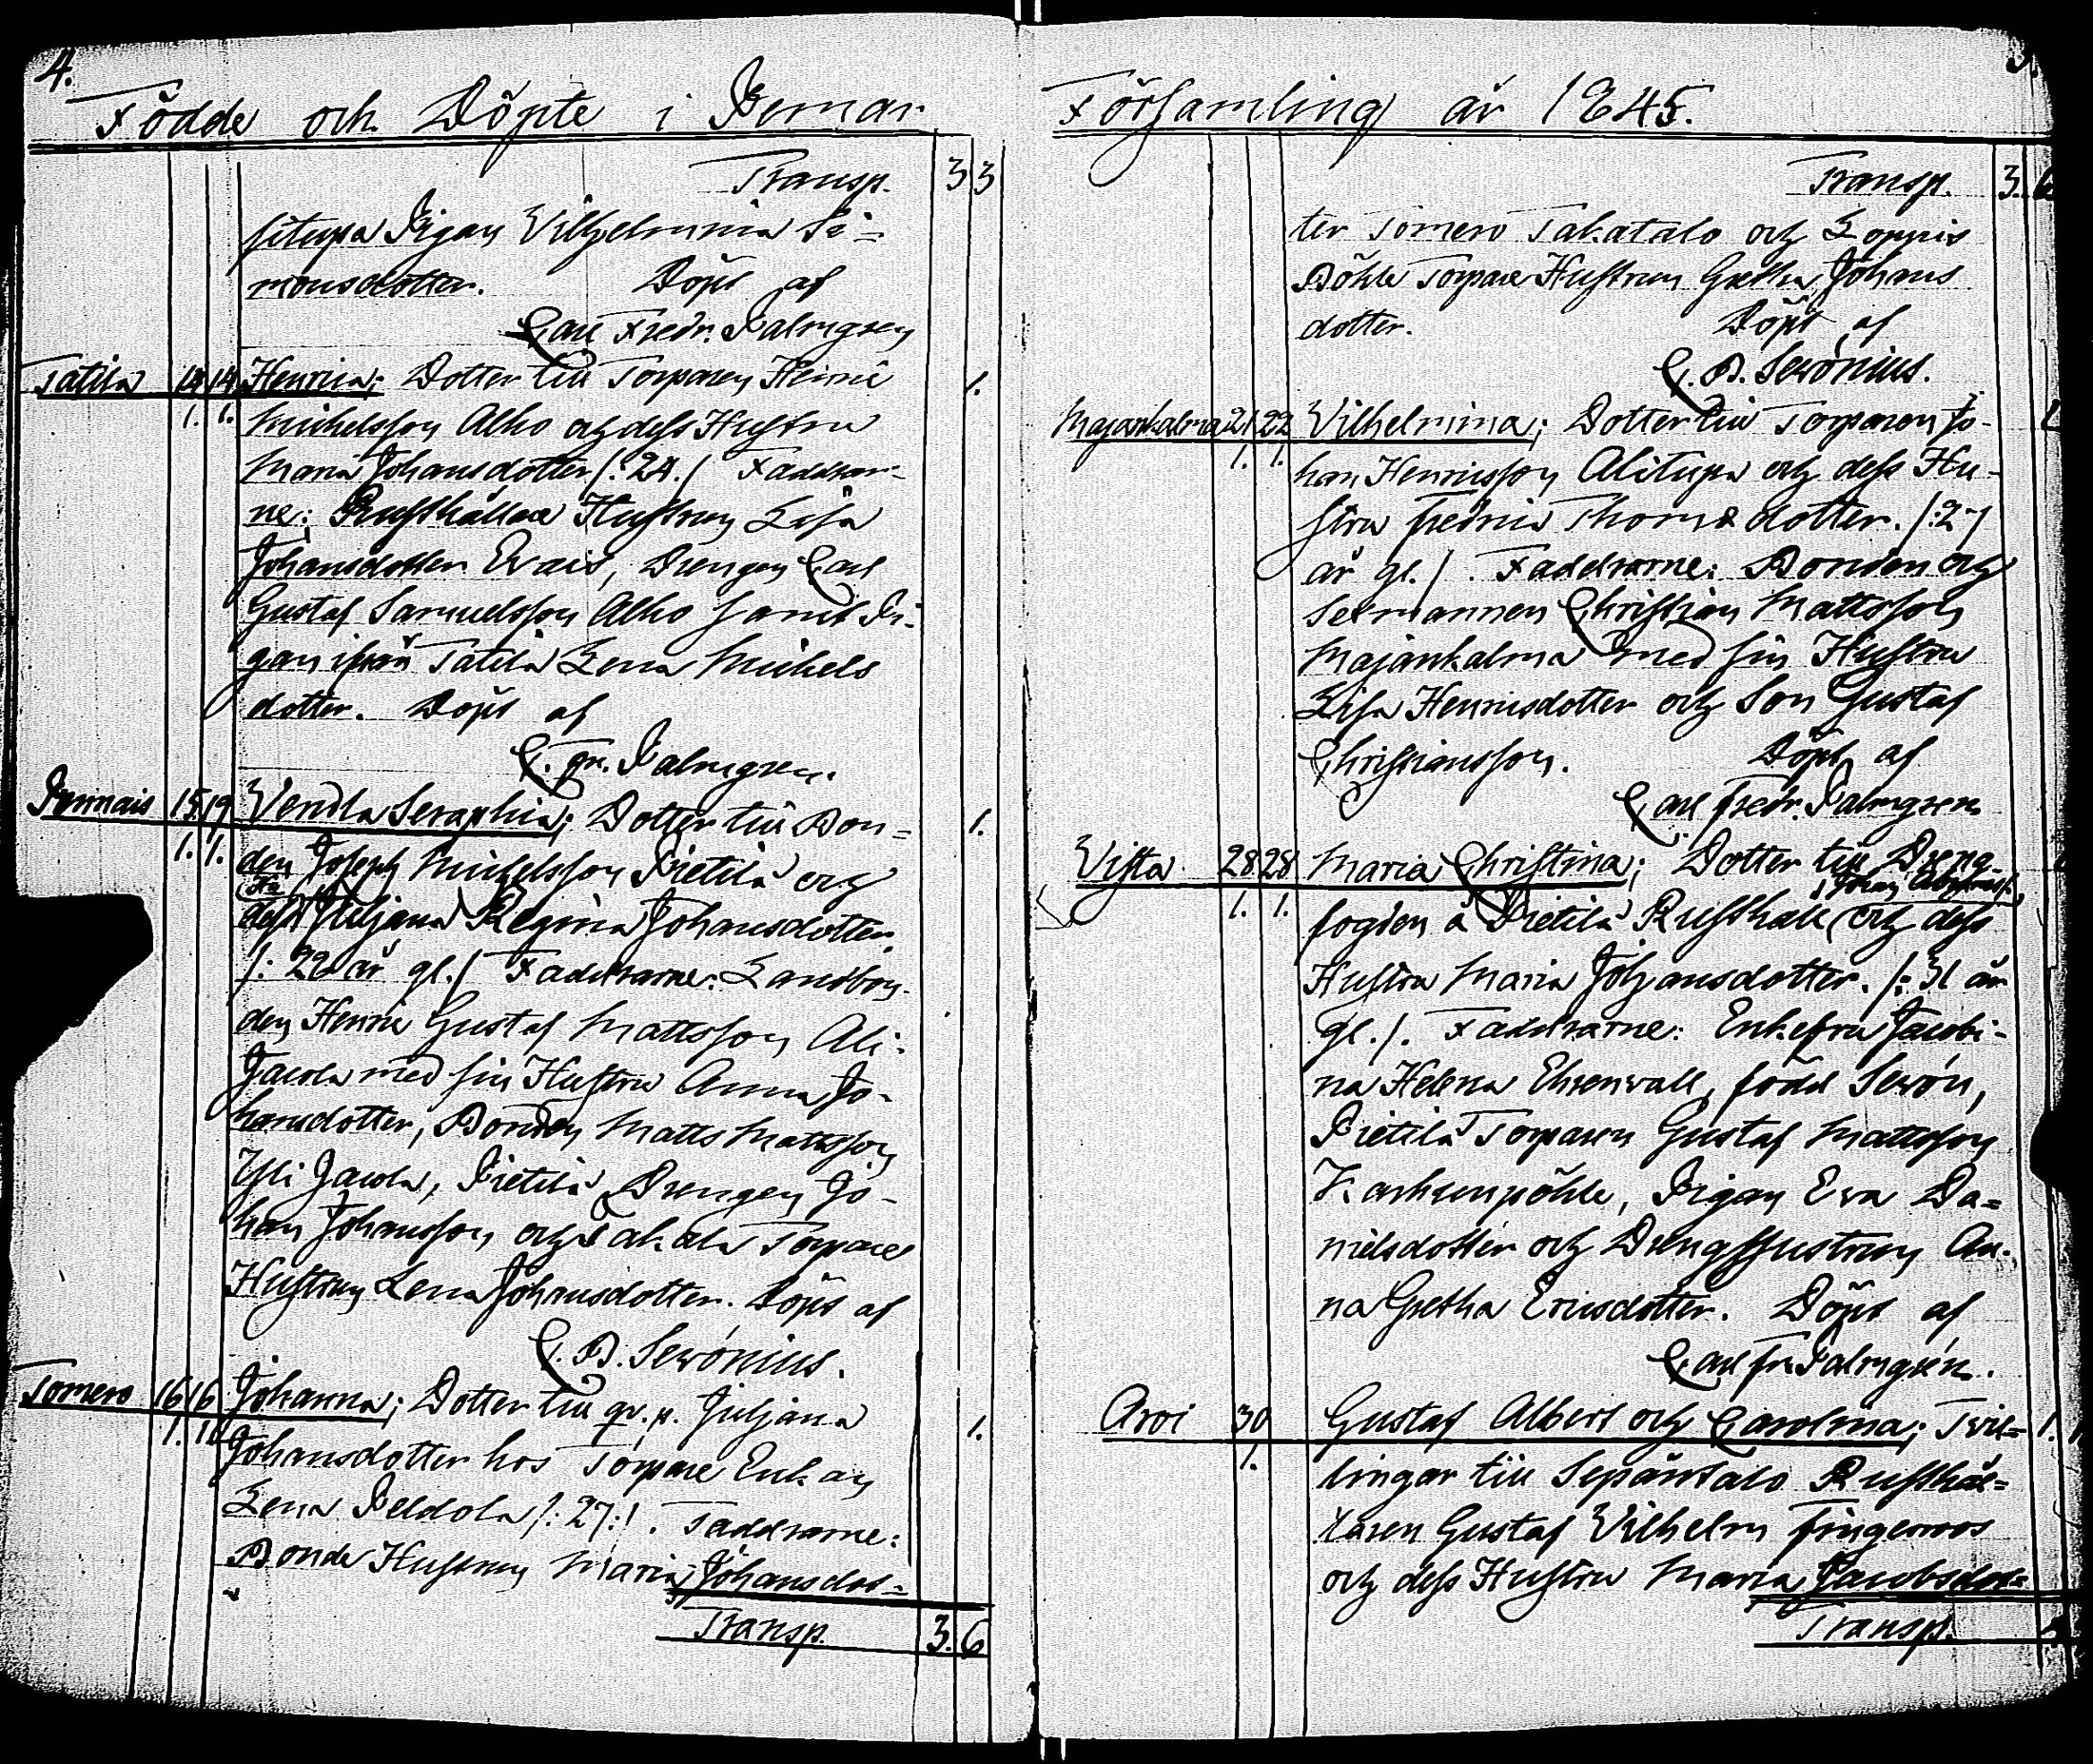 4.
Födde och Döpte i Pemar
Transp. 3 3
situpa Pigan Vilhelmina Si=
monsdotter. Döpt af
Carl Fredr. Palmgren
Tatila 14 14 Henrica; Dotter till Torparen Henric 1.
1. 1. Michelsson Alho och dess Hustru
Maria Johansdotter /: 24./ Faddrar-
ne: Rusthållare Hustrun Lisa
Johansdotter Evais, Drengen Carl
Gustaf Samuelsson Alho samt Pi-
gan ifrån Tatila Lena Michels
dotter. Döpt af
C. Fr. Palmgren.
Pennais 15 19 Vendla Seraphia; Dotter till Bon= 1.
1. 1. den Joseph Michelsson Pietilä och
dess Hu Juljana Regina Johansdotter
/: 22 år gl./ Faddrarne: Landbon-
den Henric Gustaf Mattsson Ali-
Jacola med sin Hustru Anna Jo-
hansdotter, Bonden Matts Mattsson
Yli Jacola, Pietilä Drengen Jo-
han Johansson och Takala Torpare
Hustrun Lena Johansdotter. Döpt af
C. B. Serónius.
Tomero 16 16 Johanna; Dotter till qv. p. Juljana 1.
1. 1. Johansdotter hos Torpare Enkan
Lena Peldola /: 27:/. Faddrarne:
Bonde Hustrun Maria Johansdot=
Transp. 3. 6
Församling år 1845.
Transp. 3. 6
ter Tomero Takatalo och Loppis
Böhle Torpare Hustrun Gretha Johans
dotter. Döpt af
C. B. Serónius.
Majankalma 21 22 Vilhelmina; Dotter till Torparen Jo-
1. 1. han Henricsson Alitupa och dess Hu-
stru Fredrica Thomædotter. /: 27
år gl./. Faddrarne: Bonden och
Sexmannen Christian Mattsson
Majankalma med sin Hustru
Lisa Henricsdotter och Son Gustaf
Christiansson. Döpt af
Carl Fredr. Palmgren
Vista 28 28 Maria Christina; Dotter till Dreng-
1. 1. fogden å Pietilä Rusthåll och dess
Hustru Maria Johansdotter. /: 31 år
gl./. Faddrarne: Enkefru Jacobi-
na Helena Ehrenvall, född Serón,
Pietilä Torparen Gustaf Mattsson
Karhunpöhle, Pigan Eva Da=
nielsdotter och Dreng Hustrun An-
na Gretha Ericsdotter. Döpt af
Carl Fr Palmgrén.
Arvi 30 Gustaf Albert och Carolina; Tvil= 1. 1
1. lingar till Sepäntalo Rusthål=
laren Gustaf Vilhelm Fingerroos
och dess Hustru Maria Jacobsdot=
Transp.